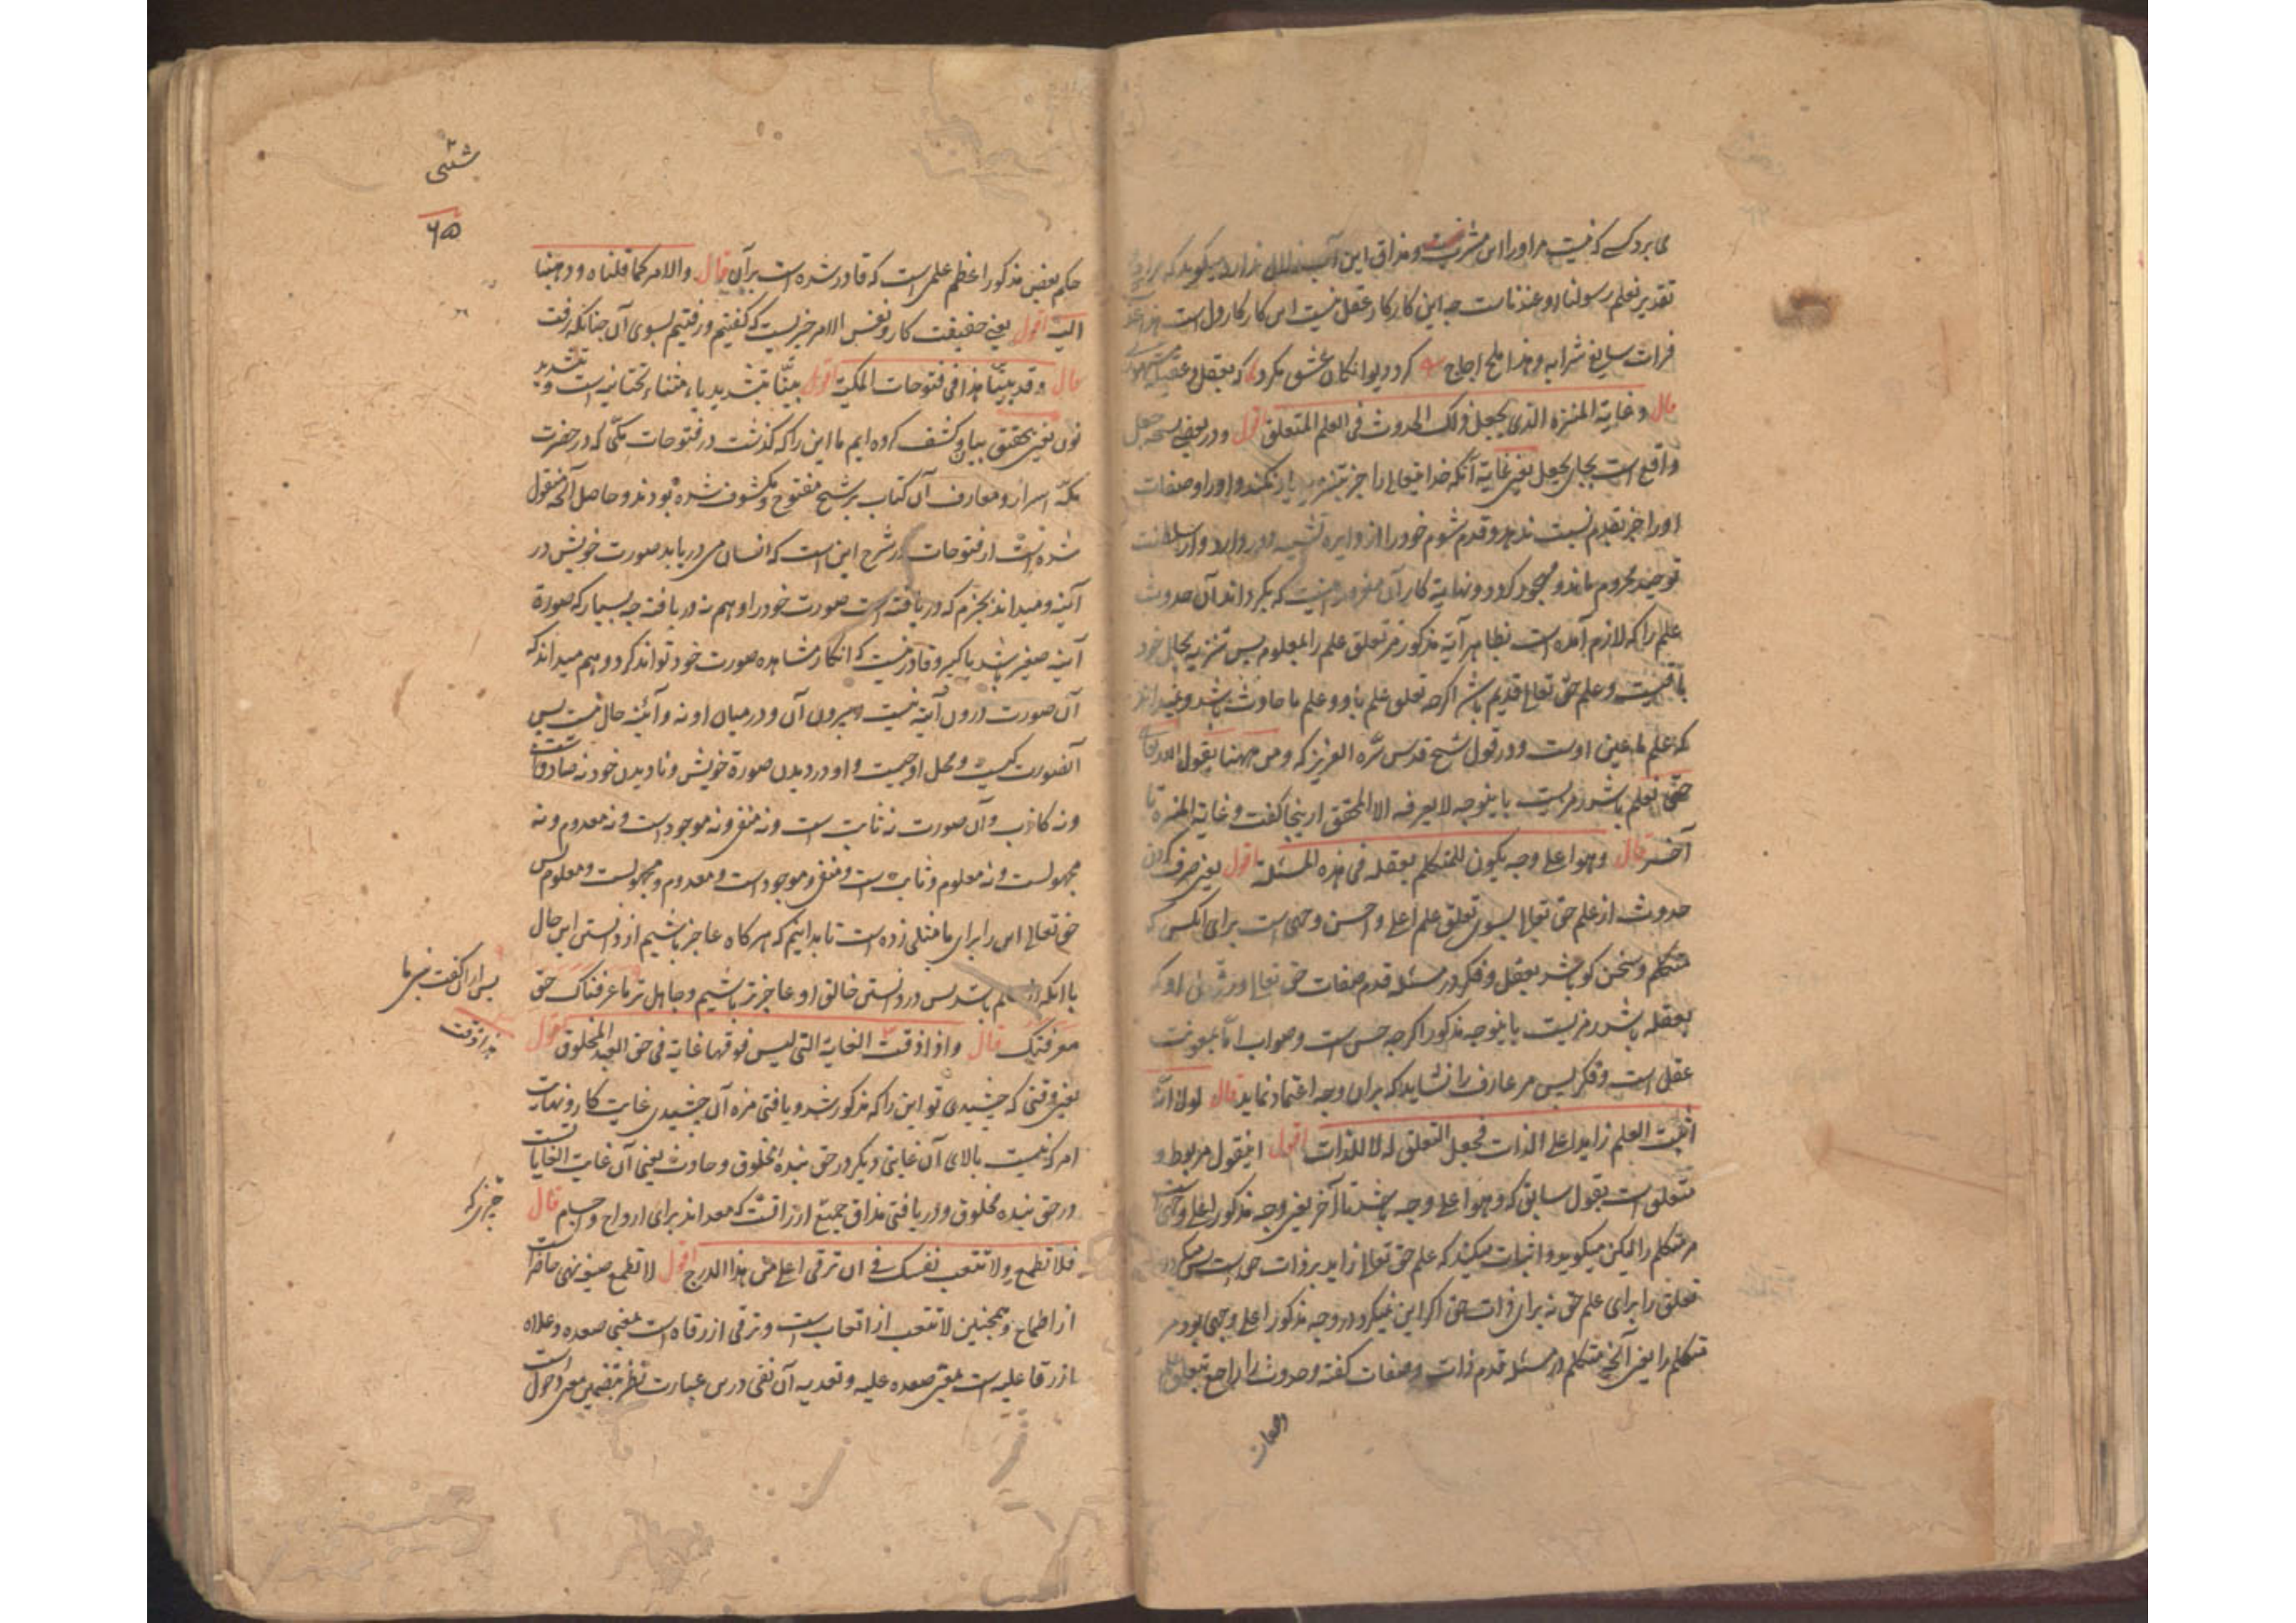 می برد کسے که نیست مر او را این مشرب و مذاق این آب زلال ندارد میگوید که مراد
تقدیر نعلم رسولنا او عندنا است چه این کار کار عقل نیست این کار کار دل است هذا عذب
فرات سایغ شرابه و هذا ملح اجاج گرد دیوانگان عشق مگرد که بعقل عقیله
قال و غایة المنزه الذی یجعل ذلک الحدوث فی العلم المتعلق اقول و در بعضی نسخه جعل
واقع است بجای یجعل یعنی غایة آنکه خدا تعالی را جز بتنزیه یاد نکند و او را و صفات
او را جز بقدم نسبت ندهد و قدم شوم خود را از دایره تشبیه دور دارد و از سلطنت
توحید محروم ماند و مهجور گردد و نهایة کار آن منزه اینست که بگرداند آن حدوث
علم را که لازم آمده است بظاهر آیة مذکور مر تعلق علم را بمعلوم پس تنزیه بحال خود
باقیست و علم حق تعالی قدیم باشد اگرچه تعلق علم باو و علم ما حادث باشد و نمیداند
که علم ما عین اوست و در قول شیخ قدس سره العزیز که و من ههنا یقول الله تعالی
حتی نعلم باشد رمزیست باینوجه لا یعرفه الا المحقق از ینجا گفت و غایة المنزه تا
آخر قال و هو اعلی وجه یکون للمتکلم بعقله فی هذه المسئله اقول یعنی صرف کردن
حدوث از علم حق تعالی بسوی تعلق علم اعلی و احسن وجهی است برای آنکسی که
متکلم و سخن گو باشد بعقل و فکر در مسئله قدم صفات حق تعالی و در او که
بعقله باشد رمزیست باینوجه مذکور اگرچه حسن است و صواب اما بمعونت
عقل است و فکر پس مر عارف را نشاید که بران وجه اعتماد نماید قال لو لا انه
اثبت العلم زایدا علی الذات فجعل التعلق له لا للذات اقول اینقول مربوط و
متعلق است بقول سابق که و هو اعلی وجه باشد تا آخر یعنی وجه مذکور اعلی وجهی است
مر متکلم را لیکن میگوید و اثبات میکند که علم حق تعالی زاید بر ذات حق است پس میگرداند
تعلق را برای علم حق نه برای ذات حق اگر این نمیکرد در وجه مذکور اعلی وجهی بود مر
متکلم را یعنی آنچه متکلم در مسئله قدم ذات و صفات گفته و حدوث را راجع بتعلق علم
حکم بعض مذکور اعظم علمی است که قادر شده است بر آن قال و الامر کما قلناه و ذهبنا
الیه اقول یعنی حقیقت کار و نفس الامر چیزیست که گفتیم و رفتیم بسوی آن چنانکه رفت
قال و قد بینا هذا فی فتوحات المکیة اقول بینا بتشدید یاء مثناء تحتانیه است و تشدید
نون یعنی بتحقیق بیان و کشف کرده ایم ما این را که گذشت در فتوحات مکی که در حضرت
مکه اسرار و معارف آن کتاب بر شیخ مفتوح و مکشوف شده بودند و حاصل آنچه منقول
شده است از فتوحات در شرح این است که انسان می دریابد صورت خویش در
آئینه و میداند بجزم که دریافته است صورت خود را و هم نه دریافته چه بسیار که صورة
آئینه صغیر باشد یا کبیر و قادر نیست که انکار مشاهده صورت خود تواند کرد و هم میداند که
آن صورت درون آئینه نیست و بیرون آن و در میان او نه و آئینه حال نیست پس
آنصورت کیست و محل او چیست و او در دیدن صورة خویش و نا دیدن خود نه صادق است
و نه کاذب و آن صورت نه ثابت است و نه منفی و نه موجود است و نه معدوم و نه
مجهولست و نه معلوم و ثابت است و منفی و موجود است و معدوم و مجهولست و معلوم پس
حق تعالی این را برای ما مثلی زده است تا بدانیم که هر گاه عاجز باشیم از دانستن این حال
با آنکه از عالم باشد پس در دانستن خالق او عاجزتر باشیم و جاهل تر ما عرفناک حق
معرفتک قال و اذا ذقت الغایة التی لیس فوقها غایة فی حق العبد المخلوق اقول
یعنی وقتی که چشیدی تو این را که مذکور شد و یافتی مزه آن چشیدی غایت کار و نهایت
امر که نیست بالای آن غایتی دیگر در حق بنده مخلوق و حادث یعنی آن غایت الغایات است
در حق بنده مخلوق و دریافتی مذاق جمیع ارزاقست که معد اند برای ارواح و اجسام قال
فلا تطمع و لا تتعب نفسک فی ان ترقی اعلی من هذا الدرج اقول لا تطمع صیغه نهی حاضر است
از اطماع و همچنین لا تتعب از اتعاب است و ترقی از رقاه است بمعنی صعده و علاه
یا از رقا علیه است بمعنی صعد علیه و تعدیه آن بفی درین عبارت نظر بتضمین معنی دخول است
شیثی
۶۵